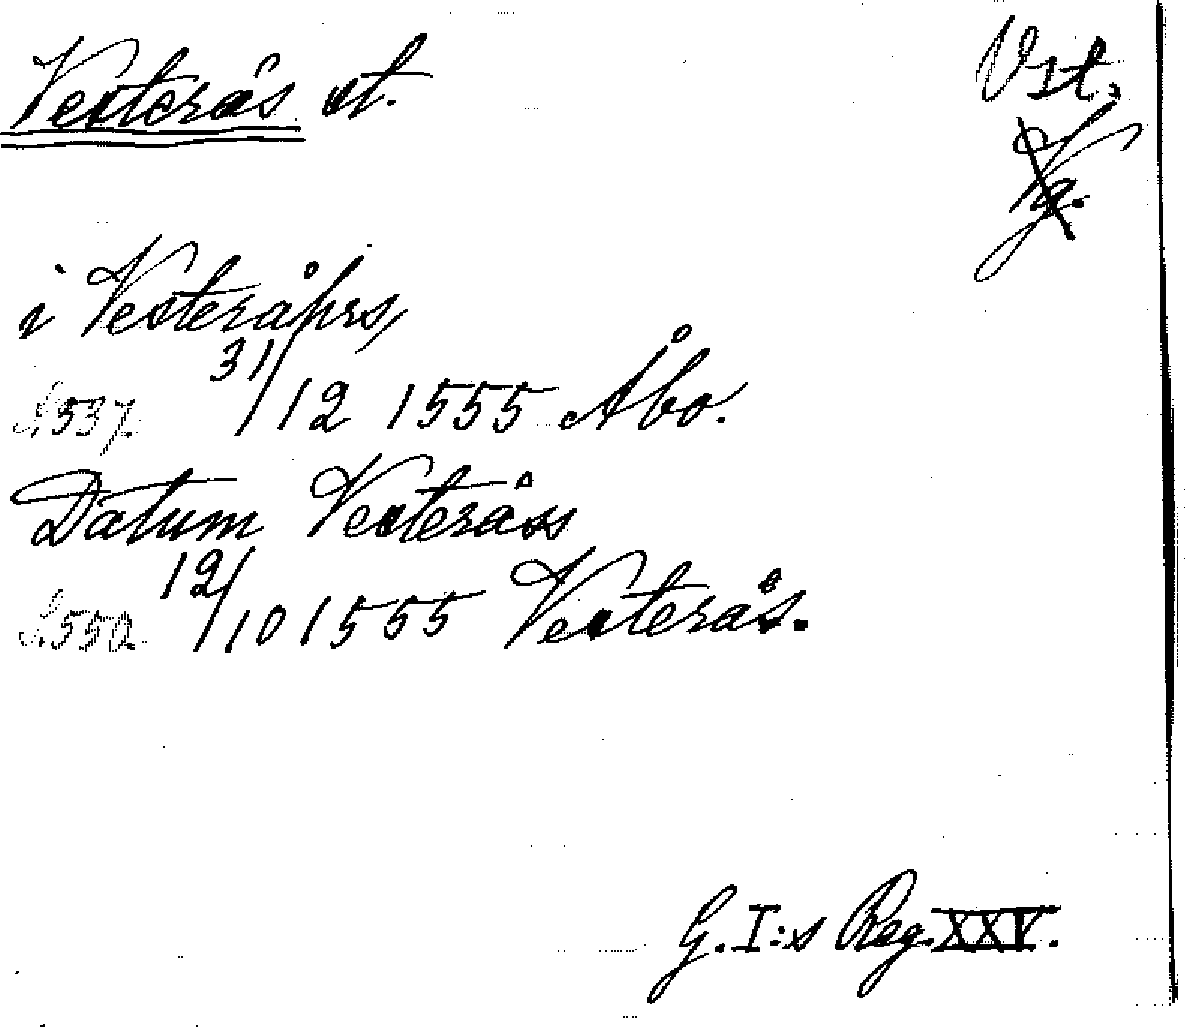 Vesterås st.
Vst.
Vg.
i Vesteråhrs,
S. 537. 31/12 1555 Åbo.
Datum Vesteråss
S. 550. 12/10 1555 Vesterås.
G. I:s Reg. XXV.